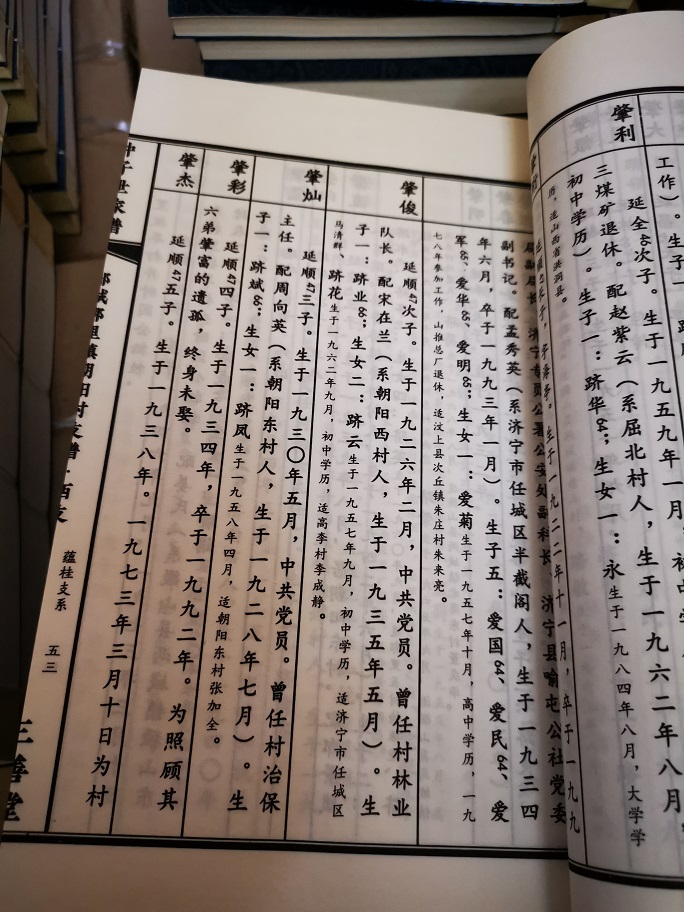 肇利
工作）。生子
延全次子。生于一九五九年一月，
三煤矿退休。配赵紫云（系屈北村人，生于一九六二年八月
初中学历）。生子一：跻华；生女一：永生于一九八四年八月，大学学
历，适山西省洪洞县。
生于一九二二年十一月，卒于一九九
济宁专员公署公安处副科长、济宁县喻屯公社党委
副书记。配孟秀英（系济宁市任城区半截阁人，生于一九三四
年六月，卒于一九九三年一月）。生子五：爱国、爱民、爱
军、爱华、爱明；生女一：爱菊生于一九五七年十月，高中学历，一九
七八年参加工作，山推总厂退休，适汶上县次丘镇朱庄村朱来亮。
肇俊
延顺次子。生于一九二六年二月，中共党员。曾任村林业
队长。配宋在兰（系朝阳西村人，生于一九三五年五月）。生
子一：跻业；生女二：跻云生于一九五七年九月，初中学历，适济宁市任城区
马清群、跻花生于一九六二年九月，初中学历，适高李村李成静。
肇灿
延顺三子。生于一九三〇年五月，中共党员。曾任村治保
主任。配周向英（系朝阳东村人，生于一九二八年七月）。生
子一：跻斌；生女一：跻凤生于一九五八年四月，适朝阳东村张加全。
肇彩
延顺四子。生于一九三四年，卒于一九九二年。为照顾其
六弟肇富的遗孤，终身未娶。
肇杰
延顺五子。生于一九三八年。一九七三年三月十日为村
蕴桂支系
五三
三善堂